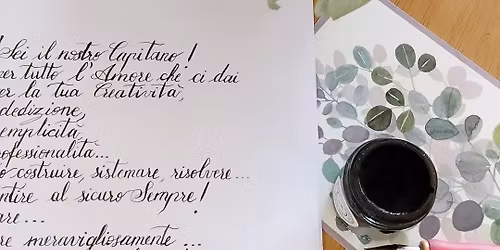 Sei il nostro Capitano!
per tutto l'Amore che ci dai
per la tua Creatività,
dedizione,
semplicità
professionalità...
costruire, sistemare, risolvere...
sentire al sicuro Sempre!
meravigliosamente...